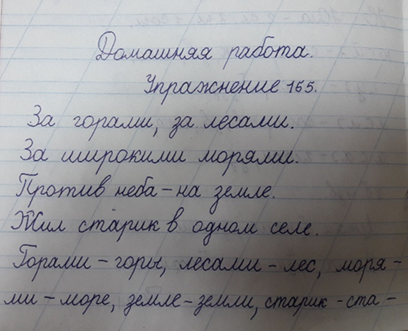 Домашняя работа.
Упражнение 165.
За горами, за лесами.
За широкими морями.
Против неба - на земле.
Жил старик в одном селе.
Горами - горы, лесами - лес, моря -
ми - море, земле - земли, старик - ста -